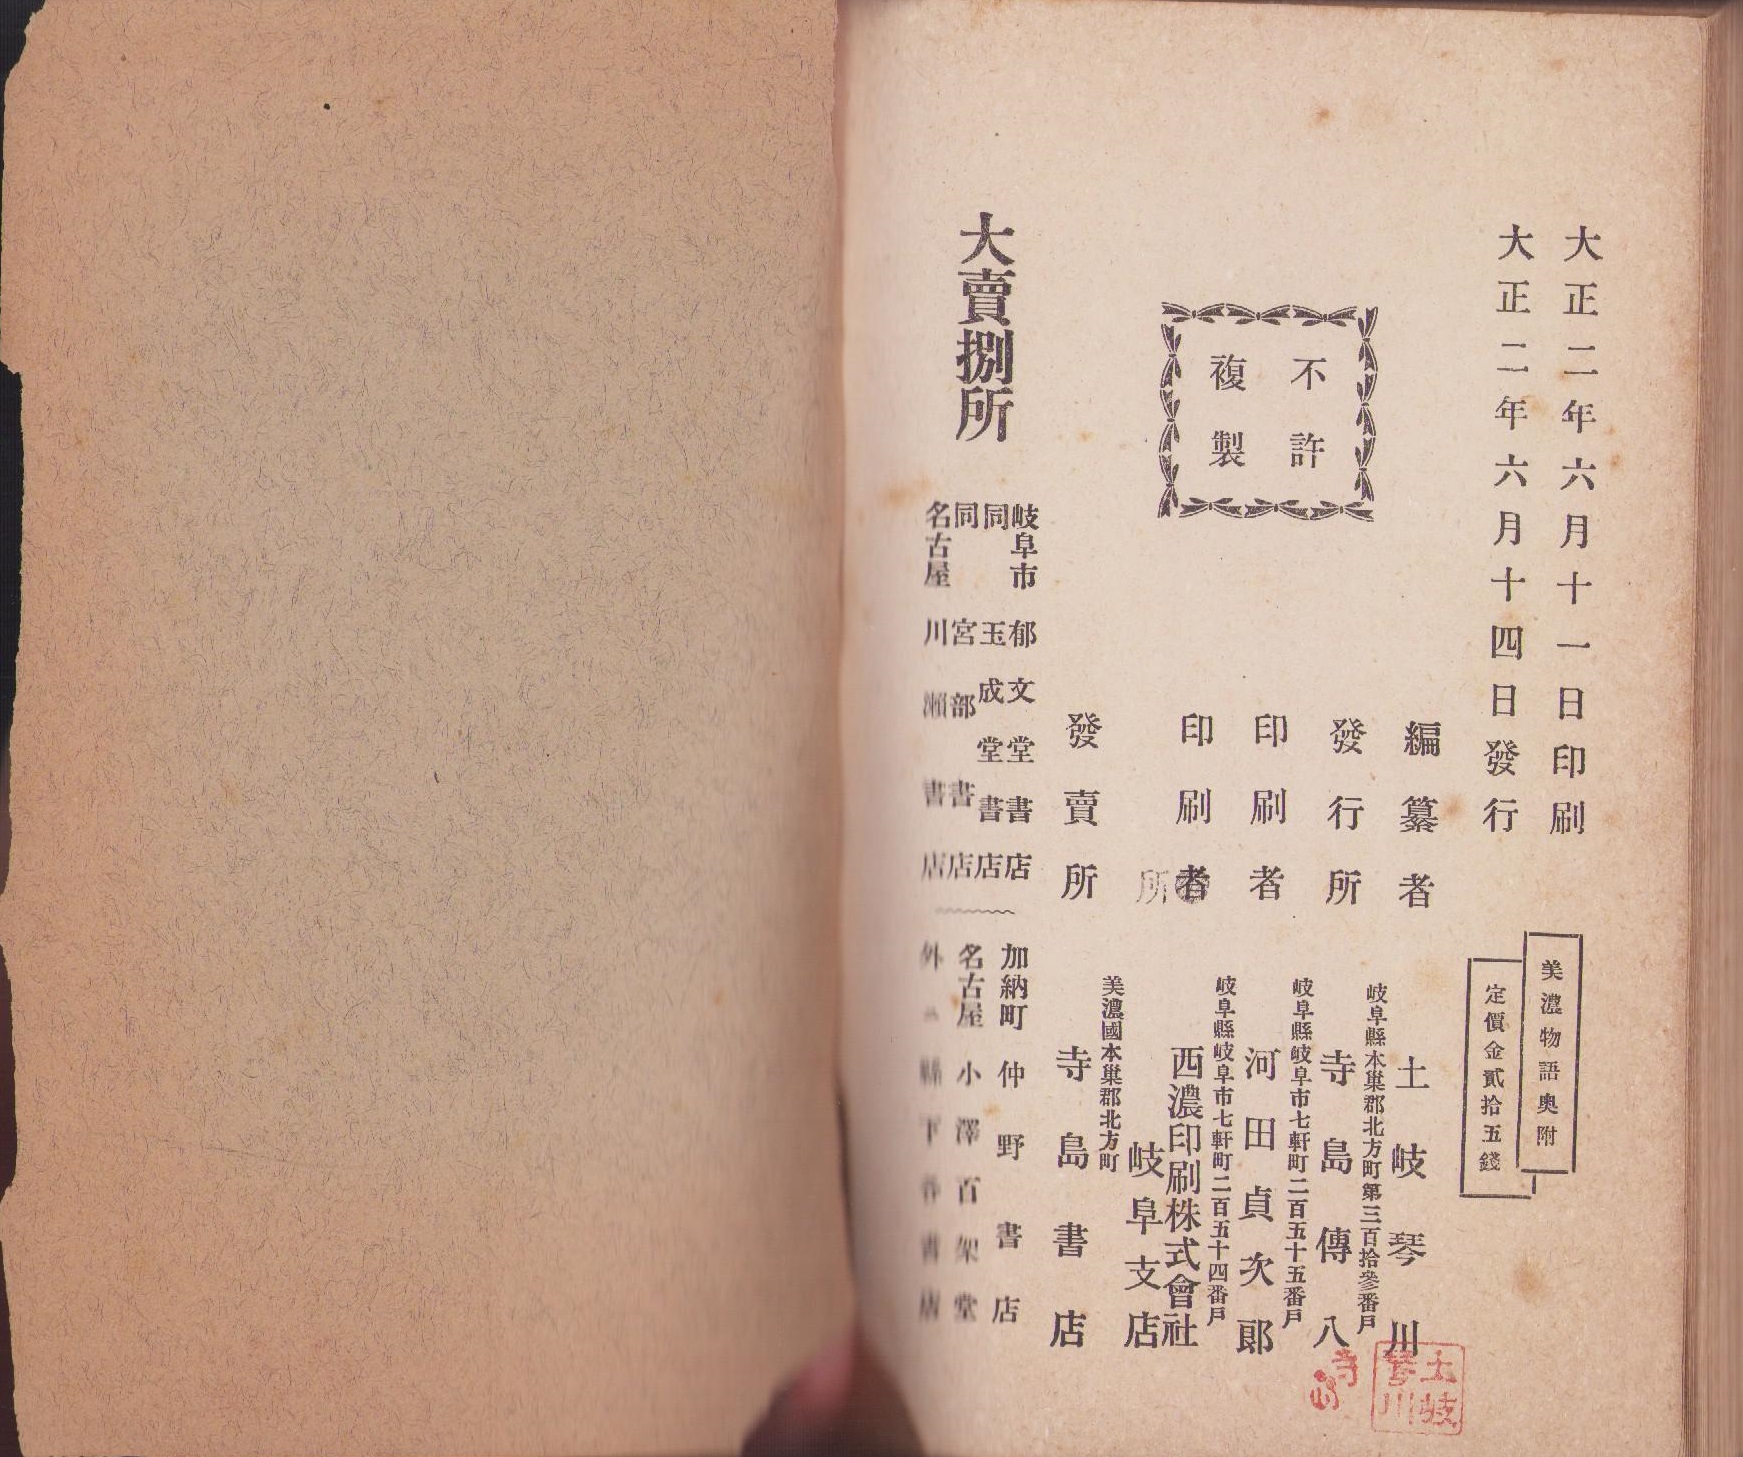 大正二年六月十一日印刷
大正二年六月十四日發行
美濃物語奥附
定價金貳拾五錢
不許
複製
編纂者
土岐琴川
土岐
琴川
岐阜縣本巢郡北方町第三百拾參番戶
發行所
寺島傳八
寺島
岐阜縣岐阜市七軒町二百五十五番戶
印刷者
河田貞次郎
岐阜縣岐阜市七軒町二百五十四番戶
印刷者
所
西濃印刷株式會社
岐阜支店
美濃國本巢郡北方町
發賣所
寺島書店
大賣捌所
岐阜市 郁文堂書店
同 玉成堂書店
同 宮部書店
名古屋 川瀨書店
加納町 仲野書店
名古屋 小澤百架堂
外 縣下各書店